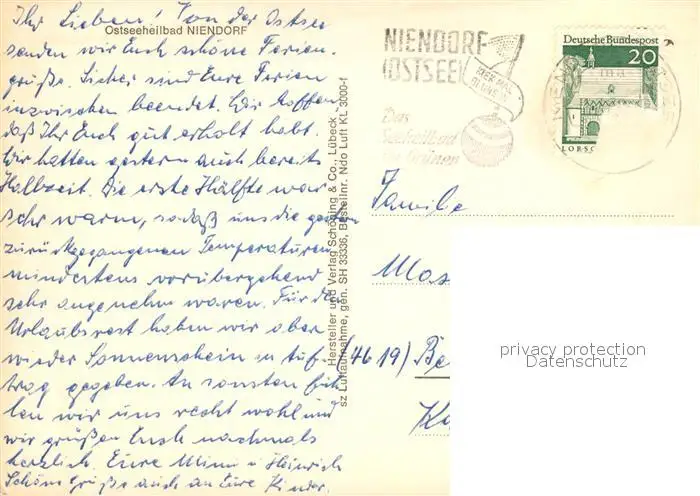 Ihr Lieben! Von der Ostsee
Ostseeheilbad NIENDORF
senden wir Euch schöne Ferien-
grüße. Sicher sind Eure Ferien
inzwischen beendet. Wir hoffen,
daß Ihr Euch gut erholt habt.
Wir hatten gestern auch bereits
Halbzeit. Die erste Hälfte war
sehr warm, sodaß uns die gestern
zurückgegangenen Temperaturen
mindestens vorübergehend
sehr angenehm waren. Für den
Urlaubsrest haben wir aber
wieder Sonnenschein in Auf-
trag gegeben. Ansonsten füh-
len wir uns recht wohl und
wir grüßen Euch nochmals
herzlich. Eure Mimi u. Heinrich
Schöne Grüße auch an Eure Kinder.
Hersteller und Verlag Schöning & Co., Lübeck
sz Luftaufnahme, gen. SH 33336, Bestellnr. Ndo Luft KL 3000-f
NIENDORF
(OSTSEE)
Das
Seeheilbad
im Grünen
Deutsche Bundespost
20
LORSC
Familie
Mos
(4619) Be
Ka
privacy protection
Datenschutz